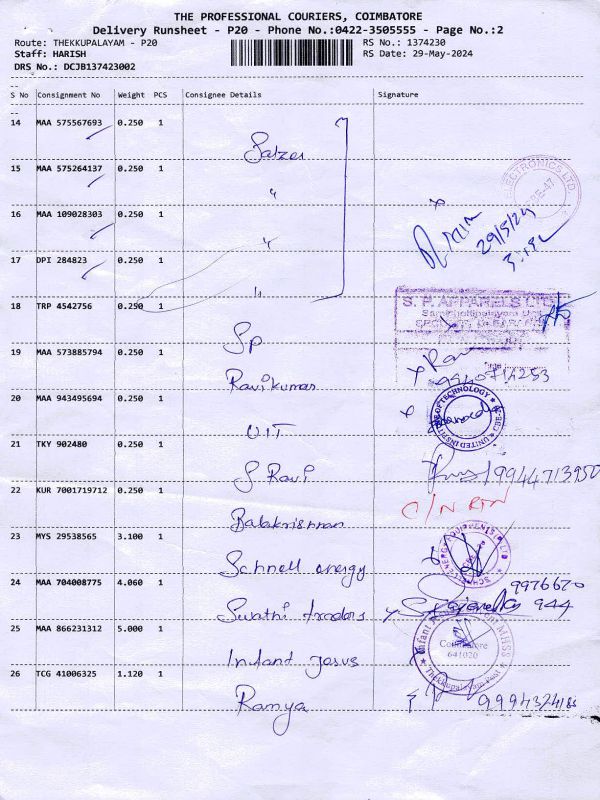 THE PROFESSIONAL COURIERS, COIMBATORE
Delivery Runsheet - P20 - Phone No.:0422-3505555 - Page No.:2
Route: THEKKUPALAYAM - P20 RS No.: 1374230
Staff: HARISH RS Date: 29-May-2024
DRS No.: DCJB137423002
S No Consignment No Weight PCS Consignee Details Signature
14 MAA 575567693 0.250 1
Salzer
15 MAA 575264137 0.250 1
"
16 MAA 109028303 0.250 1
29/5/24
"
17 DPI 284823 0.250 1
"
S. P. APPARELS LTD
18 TRP 4542756 0.250 1
Sp
19 MAA 573885794 0.250 1
Ravikumar
20 MAA 943495694 0.250 1
UNITED INSTITUTE OF TECHNOLOGY
UIT
21 TKY 902480 0.250 1
S Ravi 9944713950
22 KUR 7001719712 0.250 1
C/N RTN
Balakrishnan
23 MYS 29538565 3.100 1
Schnell energy
24 MAA 704008775 4.060 1
9976670
Swathi traders 944
25 MAA 866231312 5.000 1
Coimbatore
641020
Infant Jesus
Thekkupalayam Post
26 TCG 41006325 1.120 1
Ramya